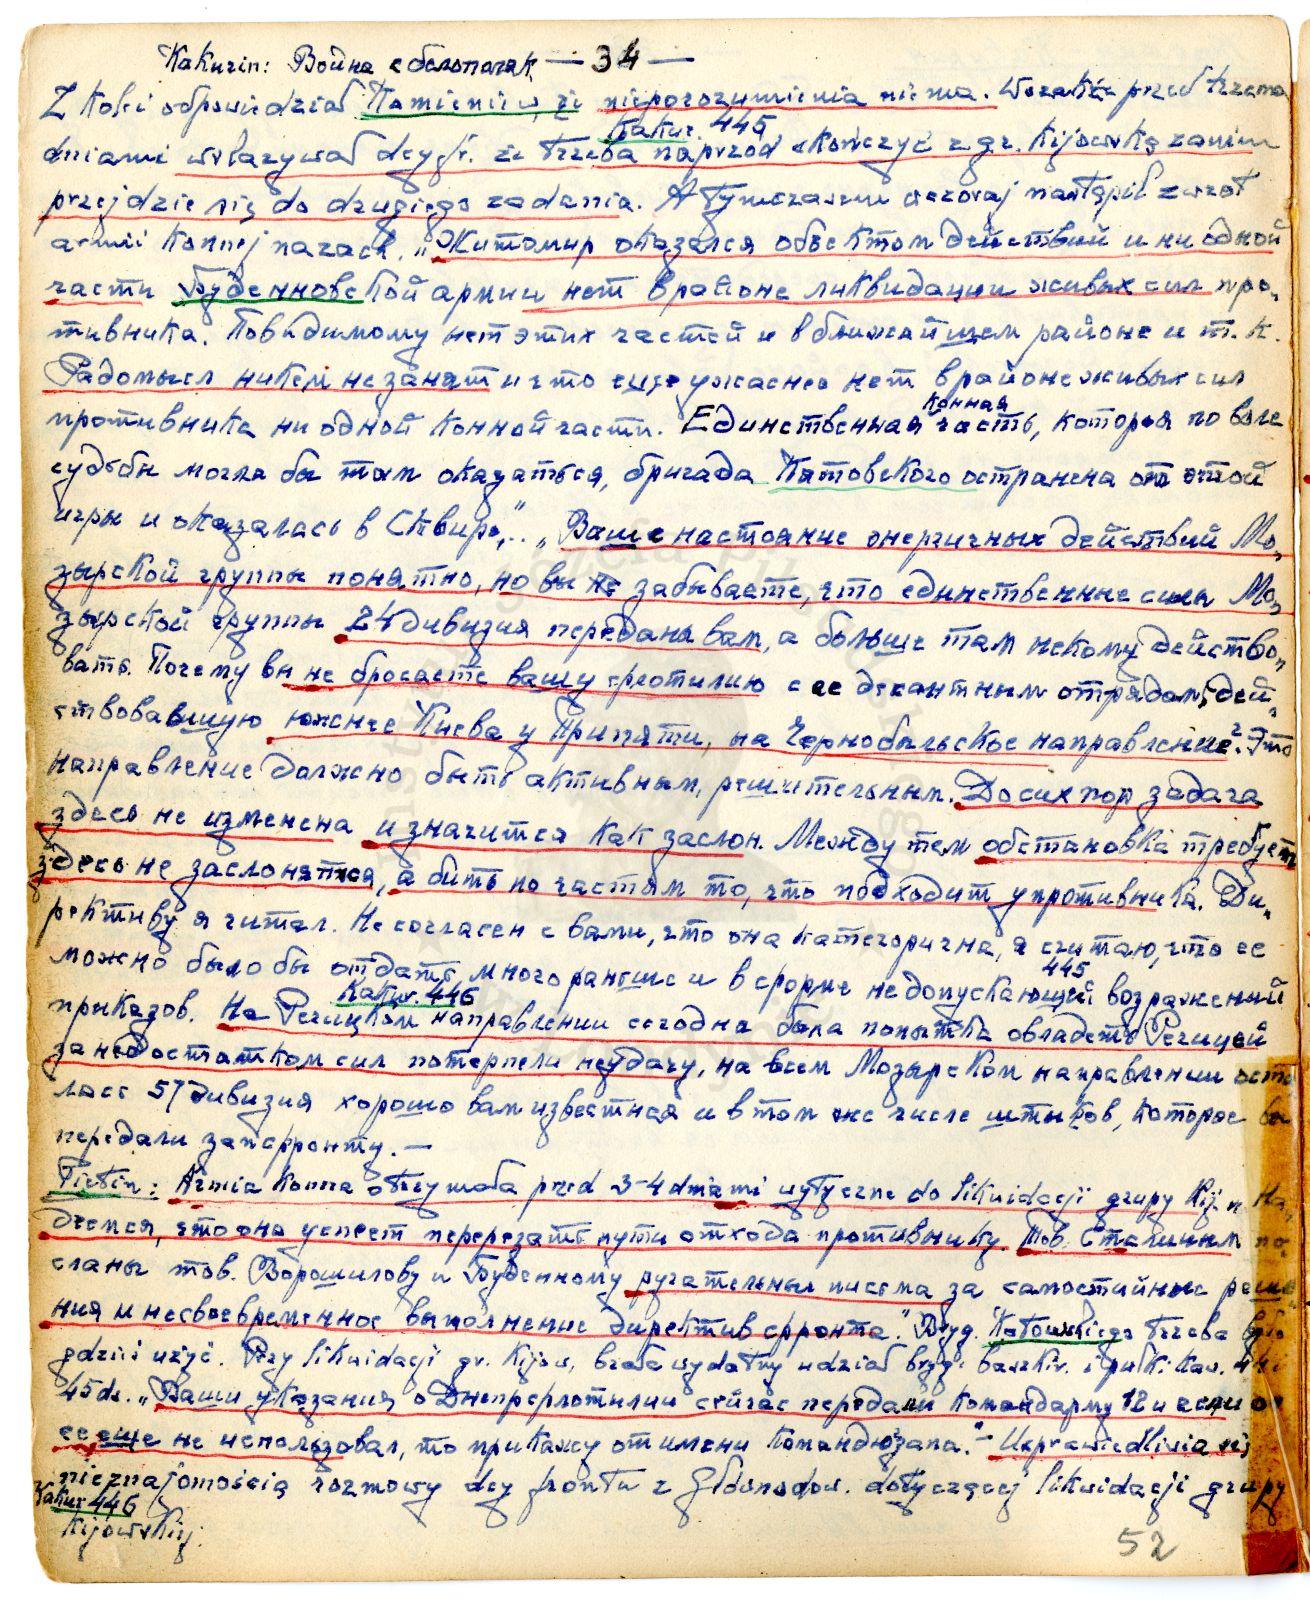 Kakurin: Война с белополяк — 34 —
Z kolei odpowiedział Kamieniew, że nieporozumienia niema. Wszakże przed trzema
Kakur. 445
dniami wskazywał dcy fr. że trzeba naprzód skończyć z gr. kijowską zanim
przejdzie się do drugiego zadania. A tymczasem wczoraj nastąpił zwrot
armii konnej na zach. „Житомир оказался объектом действий и ни одной
части Буденновской армии нет в районе ликвидации живых сил про-
тивника. Повидимому нет этих частей и в ближайшем районе и т. к.
Радомысл никем не занят и что еще ужаснее нет в районе живых сил
противника ни одной конной части. Единственная конная часть, которая по воле
судьбы могла бы там оказаться, бригада Катовского остранена от этой
игры и оказалась в Сквире,.. „Ваше настояние энергичных действий Мо-
зырской группы понятно, но вы не забываете, что единственные силы Мо-
зырской группы 24 дивизия передана вам, а больше там некому действо-
вать. Почему вы не бросаете вашу флотилию с ее десантным отрядом, дей-
ствовавшую южнее Киева у Припяти, на Чернобыльское направление? Это
направление должно быть активным, решительным. До сих пор задача
здесь не изменена и значится как заслон. Между тем обстановка требует
здесь не заслоняться, а бить по частям то, что подходит у противника. Ди-
рективу я читал. Не согласен с вами, что она категорична, я считаю, что ее
можно было бы отдать много раньше и в форме недопускающей возражений
445
Kakur. 446
приказов. На Речицком направлении сегодня была попытка овладеть Речицей
за недостатком сил потерпели неудачу, на всем Мозырском направлении оста
лась 57 дивизия хорошо вам известная и в том же числе штыков, которое вы
передали запфронту. —
Pietin: Armia konna otrzymała przed 3-4 dniami wytyczne do likwidacji grupy Kij. „На-
деемся, что она успеет перерезать пути отхода противнику. Тов. Сталиным по-
сланы тов. Ворошилову и Буденному ругательные письма за самостийные реше-
ния и несвоевременное выполнение директив фронта." Bryg. Katowskiego trzeba było
gdzieś użyć. Przy likwidacji gr. Kijow. brała wydatny udział bryg. baszkir. i pułk. kaw. 44 i
45 ds. „Ваши указания о Днепрфлотилии сейчас передам командарму 12 и если он
ее еще не использовал, то прикажу от имени командюзапа." - Usprawiedliwia się
nieznajomością rozmowy dcy frontu z Głównodow. dotyczącej likwidacji grupy
Kakur 446
Kijowskiej.
52